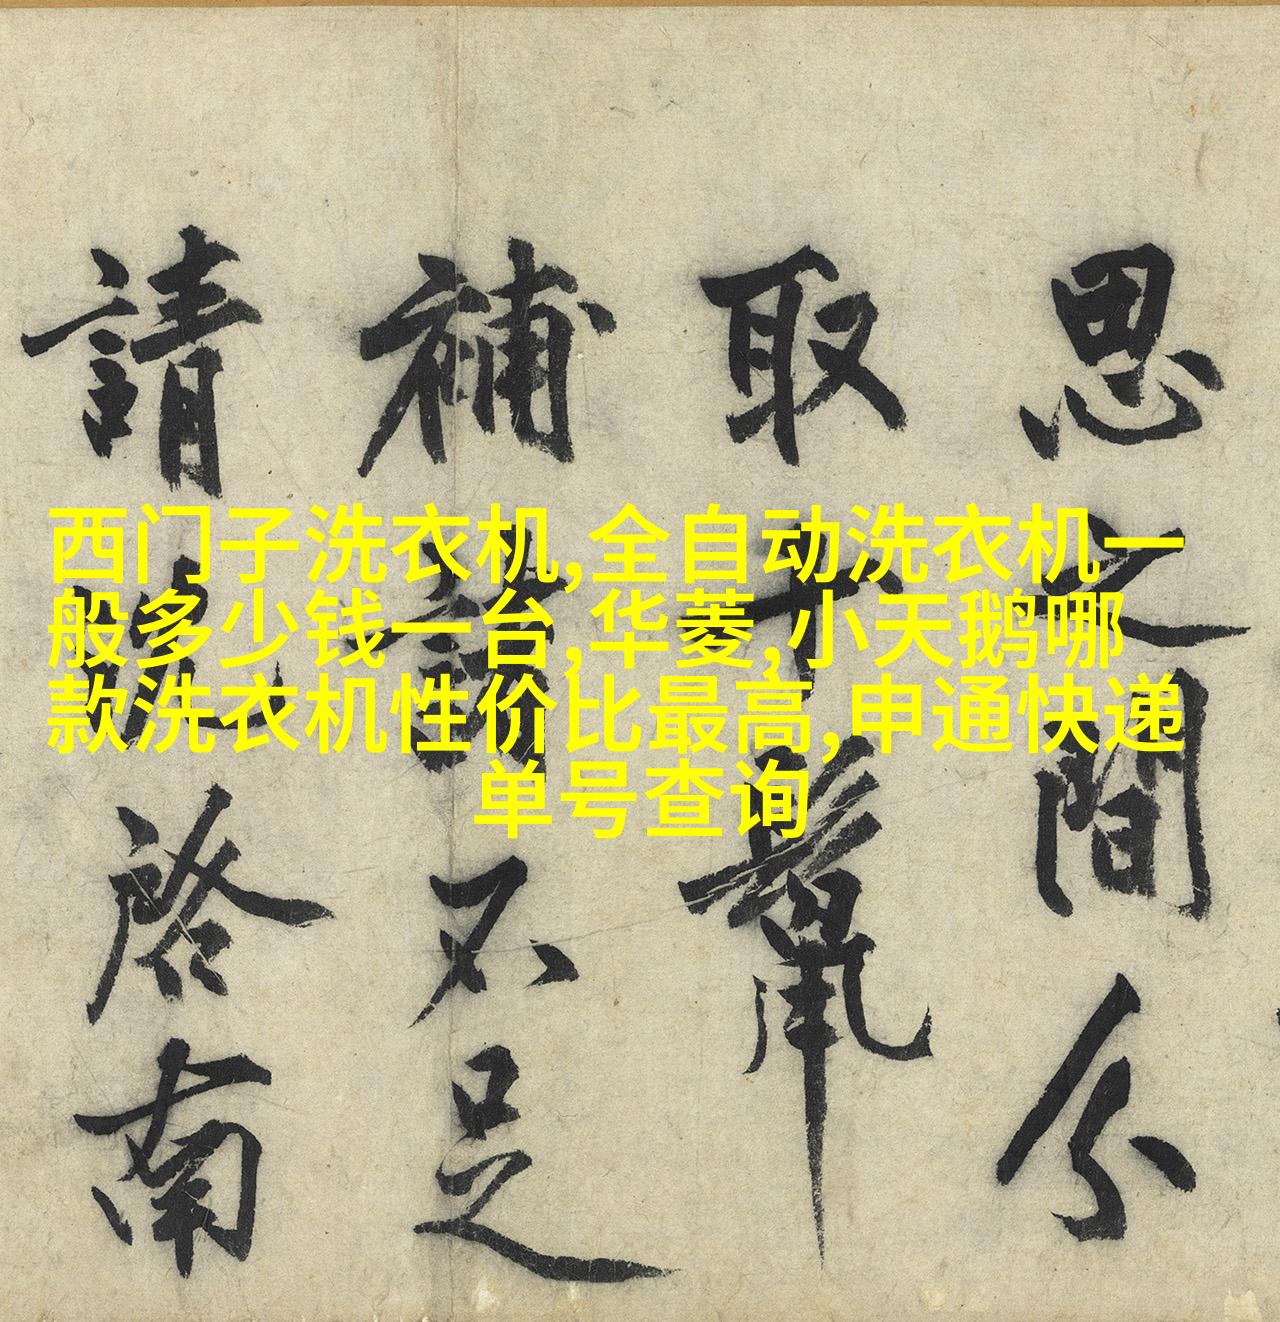 西门子洗衣机,全自动洗衣机一
般多少钱一台,华菱,小天鹅哪
款洗衣机性价比最高,申通快递
单号查询
思之間分
取十
補討不足
請啓南